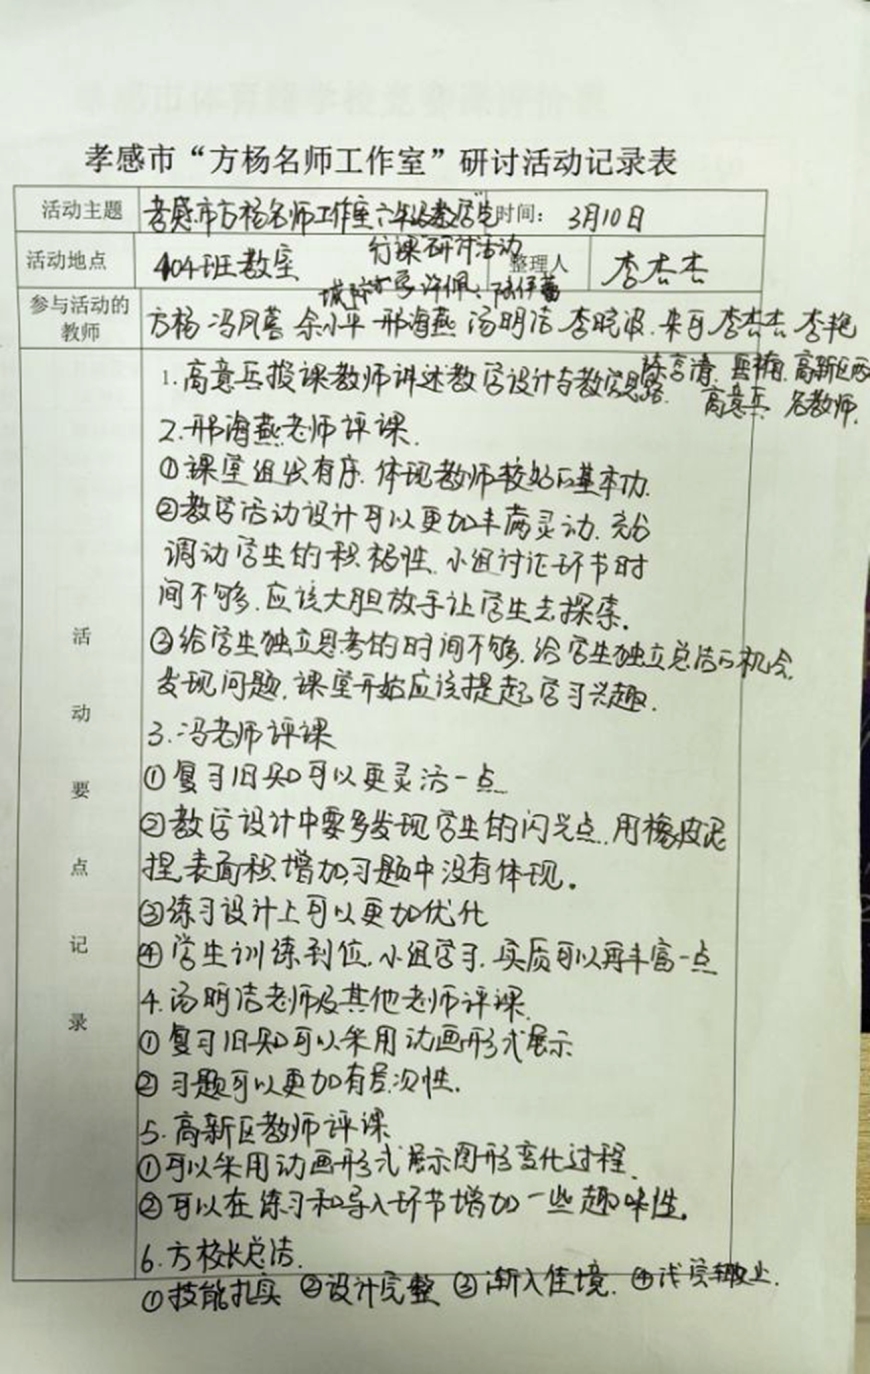 孝感市“方杨名师工作室”研讨活动记录表
活动主题 孝感市方杨名师工作室六年级数学先 时间： 3月10日
行课研讨活动
活动地点 404班教室 整理人 李杰杰
许佩：陈伊蕾
参与活动的教师 方杨 冯凤菖 余小平 邢海燕 汤明洁 李晓波 朱可 李杰杰 李艳
陈言清 高新区西
高意兵 名教师.
活动要点记录
1.高意兵授课教师讲述教学设计与教学思路.
2.邢海燕老师评课.
①课堂组织有序.体现教师较好的基本功.
②教学活动设计可以更加丰满灵动.充分
调动学生的积极性.小组讨论环节时
间不够.应该大胆放手让学生去探索.
③给学生独立思考的时间不够.给学生独立总结的机会.
发现问题.课堂开始应该提起学习兴趣.
3.冯老师评课
①复习旧知可以更灵活一点
②教学设计中要多发现学生的闪光点.用橡皮泥
捏表面积增加,习题中没有体现。
③练习设计上可以更加优化
④学生训练到位.小组学习.实质可以再丰富一点
4.汤明洁老师及其他老师评课.
①复习旧知可以采用动画形式展示
②习题可以更加有层次性.
5.高新区教师评课
①可以采用动画形式展示图形变化过程.
②可以在练习和导入环节增加一些趣味性。
6.方校长总结.
①技能扎实 ②设计完整 ③渐入佳境.④浅尝辄止.